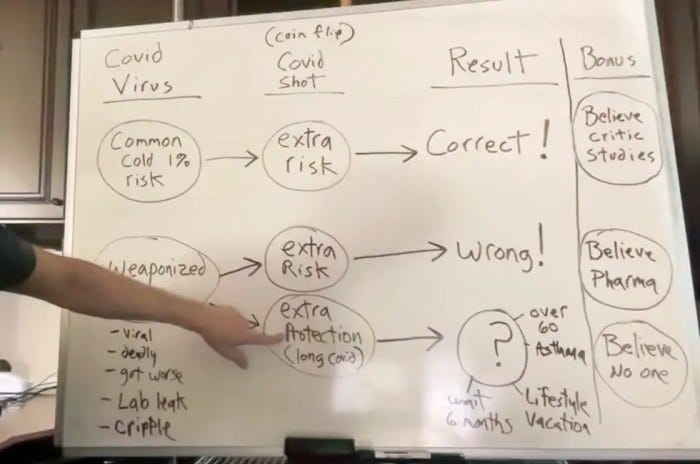 Covid
Virus
(coin flip)
Covid
Shot
Result
Bonus
Common
Cold 1%
risk
extra
risk
Correct!
Believe
critic
studies
Weaponized
- viral
- deadly
- got worse
- Lab leak
- Cripple
extra
Risk
Wrong!
Believe
Pharma
extra
Protection
(long Covid)
?
over
60
Asthma
Lifestyle
Vacation
wait
6 months
Believe
No one